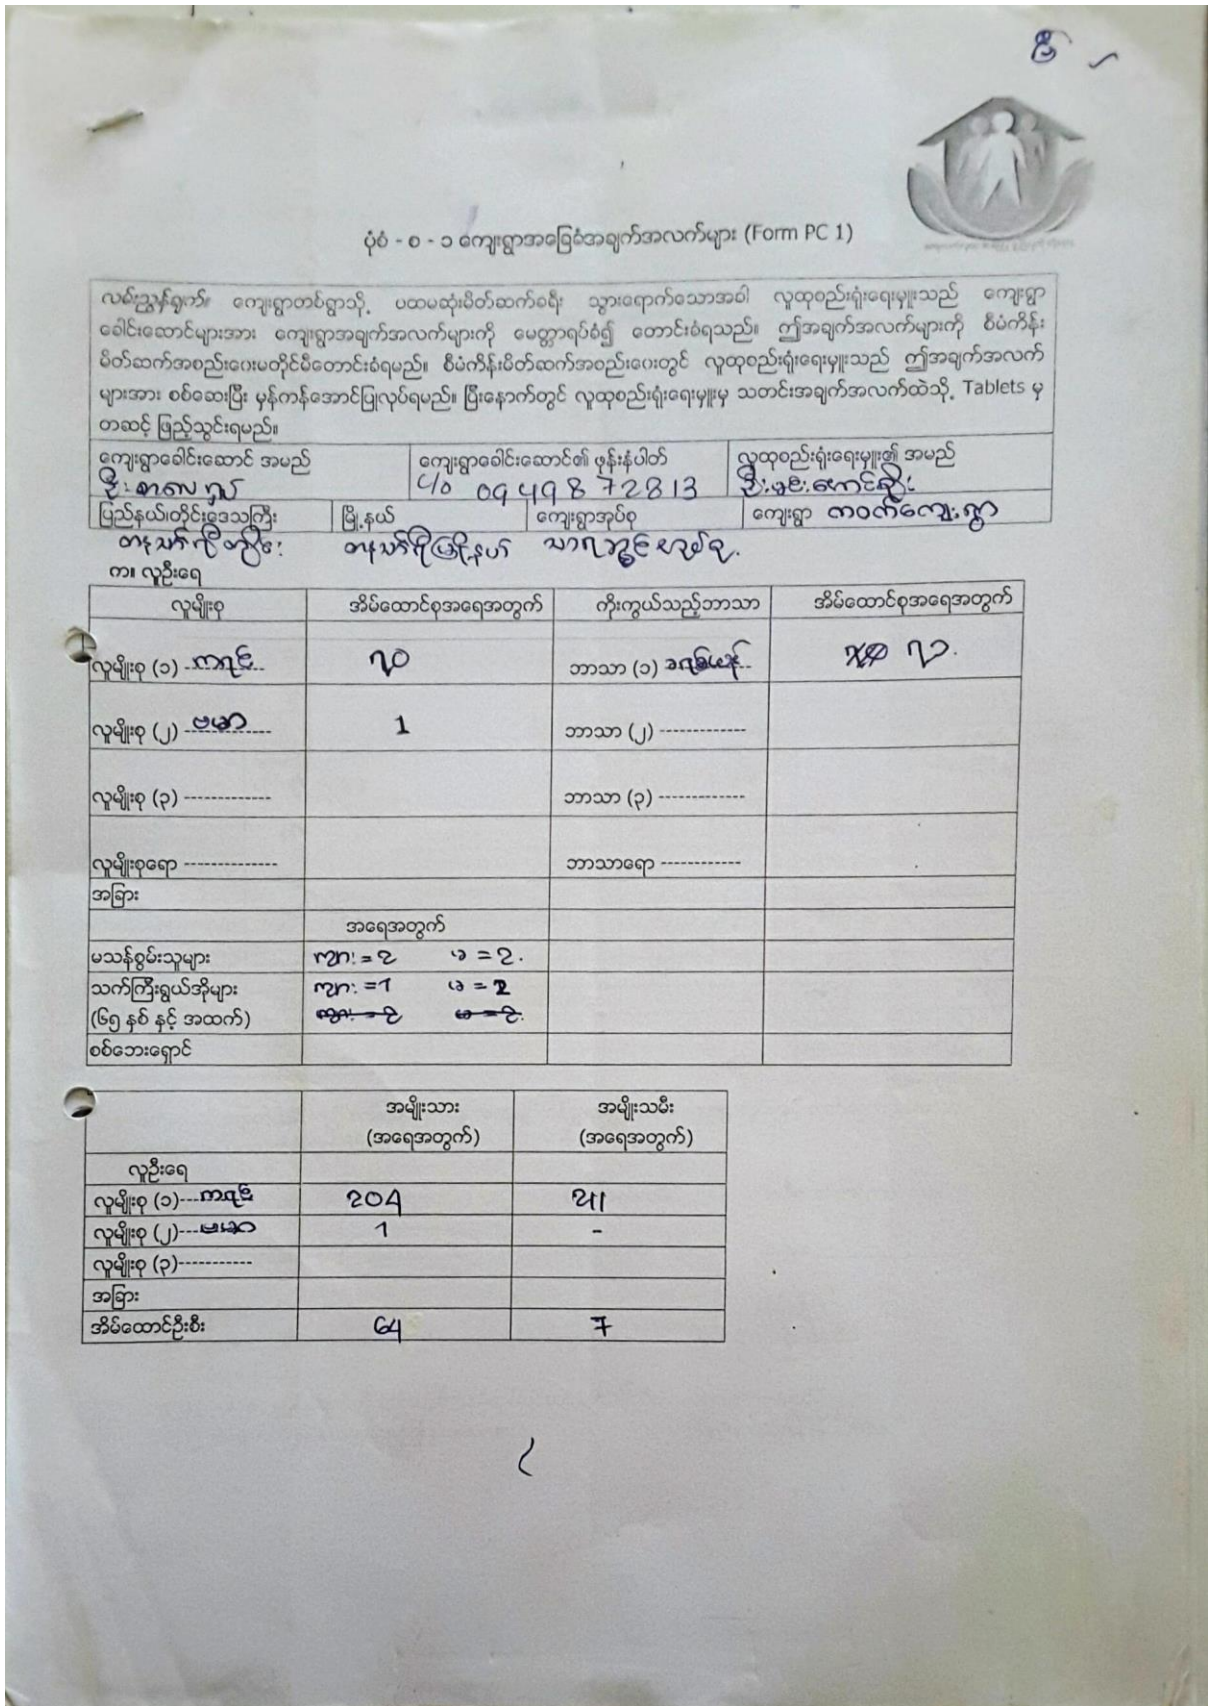 ပုံစံ - စ - ၁ ကျေးရွာအခြေခံအချက်အလက်များ (Form PC 1)
လမ်းညွှန်ချက်။ ကျေးရွာတစ်ရွာသို့ ပထမဆုံးမိတ်ဆက်ခရီး သွားရောက်သောအခါ လူထုစည်းရုံးရေးမှူးသည် ကျေးရွာ
ခေါင်းဆောင်များအား ကျေးရွာအချက်အလက်များကို မေတ္တာရပ်ခံ၍ တောင်းခံရသည်။ ဤအချက်အလက်များကို စီမံကိန်း
မိတ်ဆက်အစည်းဝေးမတိုင်မီတောင်းခံရမည်။ စီမံကိန်းမိတ်ဆက်အစည်းဝေးတွင် လူထုစည်းရုံးရေးမှူးသည် ဤအချက်အလက်
များအား စစ်ဆေးပြီး မှန်ကန်အောင်ပြုလုပ်ရမည်။ ပြီးနောက်တွင် လူထုစည်းရုံးရေးမှူးမှ သတင်းအချက်အလက်ထဲသို့ Tablets မှ
တဆင့် ဖြည့်သွင်းရမည်။
ကျေးရွာခေါင်းဆောင် အမည် ကျေးရွာခေါင်းဆောင်၏ ဖုန်းနံပါတ် လူထုစည်းရုံးရေးမှူး၏ အမည်
c/o 09498872813
ပြည်နယ်၊တိုင်းဒေသကြီး မြို့နယ် ကျေးရွာအုပ်စု ကျေးရွာ
တနင်္သာရီမြို့နယ်
က။ လူဦးရေ
လူမျိုးစု အိမ်ထောင်စုအရေအတွက် ကိုးကွယ်သည့်ဘာသာ အိမ်ထောင်စုအရေအတွက်
လူမျိုးစု (၁) ကရင် ၇၀ ဘာသာ (၁) ခရစ်ယာန် ၇၁.
လူမျိုးစု (၂) ဗမာ 1 ဘာသာ (၂) -------------
လူမျိုးစု (၃) ------------- ဘာသာ (၃) -------------
လူမျိုးစုရော -------------- ဘာသာရော ------------
အခြား
အရေအတွက်
မသန်စွမ်းသူများ ကျား = 2 မ = 2.
သက်ကြီးရွယ်အိုများ ကျား = 1 မ = 2
(၆၅ နှစ် နှင့် အထက်) ကျား = 2 မ = 2.
စစ်ဘေးရှောင်
အမျိုးသား အမျိုးသမီး
(အရေအတွက်) (အရေအတွက်)
လူဦးရေ
လူမျိုးစု (၁)---ကရင် 204
လူမျိုးစု (၂)---ဗမာ 1 -
လူမျိုးစု (၃)-----------
အခြား
အိမ်ထောင်ဦးစီး 64 7